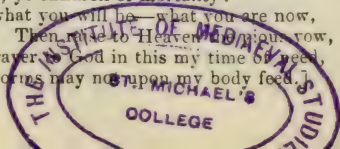 hat you will be—what you are now,
Then raise to Heaven
God in this my time of need,
orms may not upon my body feed.]
THE INSTITUTE OF MEDIAEVAL STUDI
ST. MICHAEL'S
COLLEGE